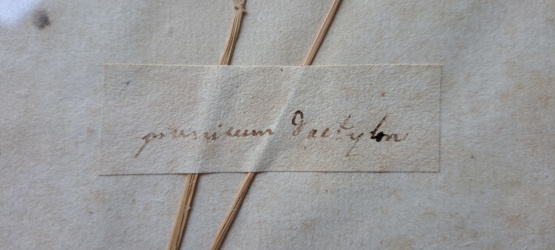 panicum Dactylon